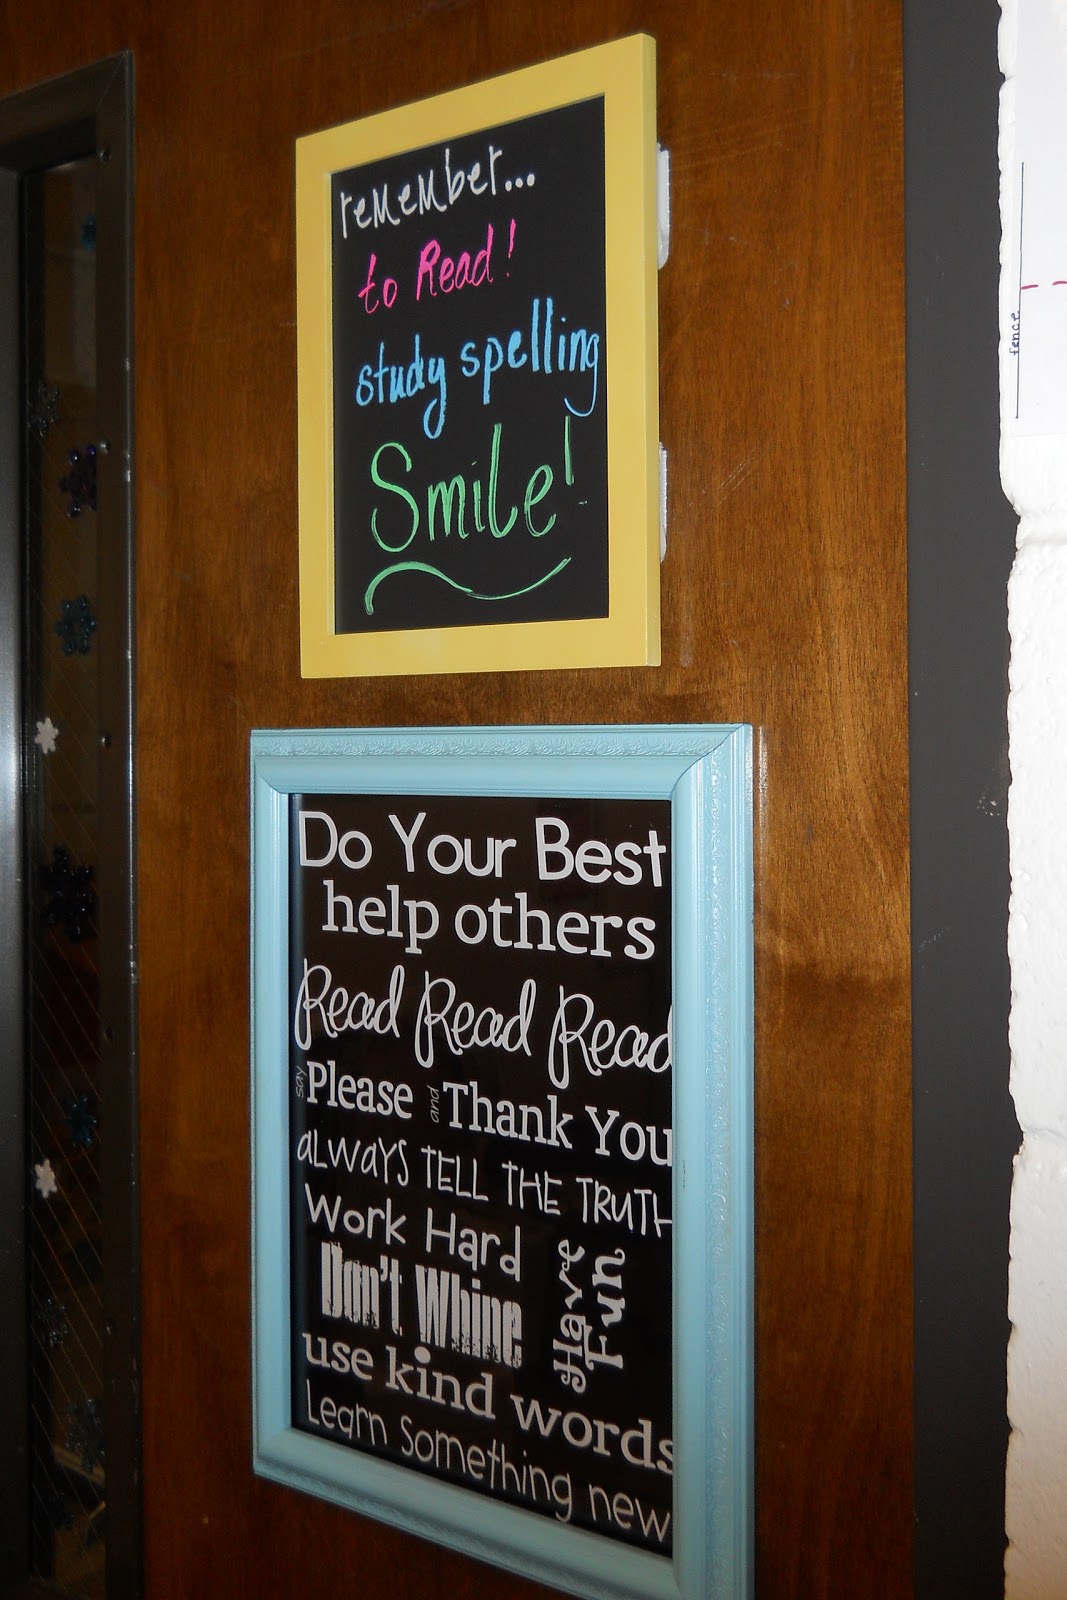 remember...
to Read!
study spelling
Smile!
Do Your Best
help others
Read Read Read
say Please and Thank You
always TELL THE TRUTH
Work Hard
Don't Whine
Have
Fun
use kind words
Learn Something new
fence